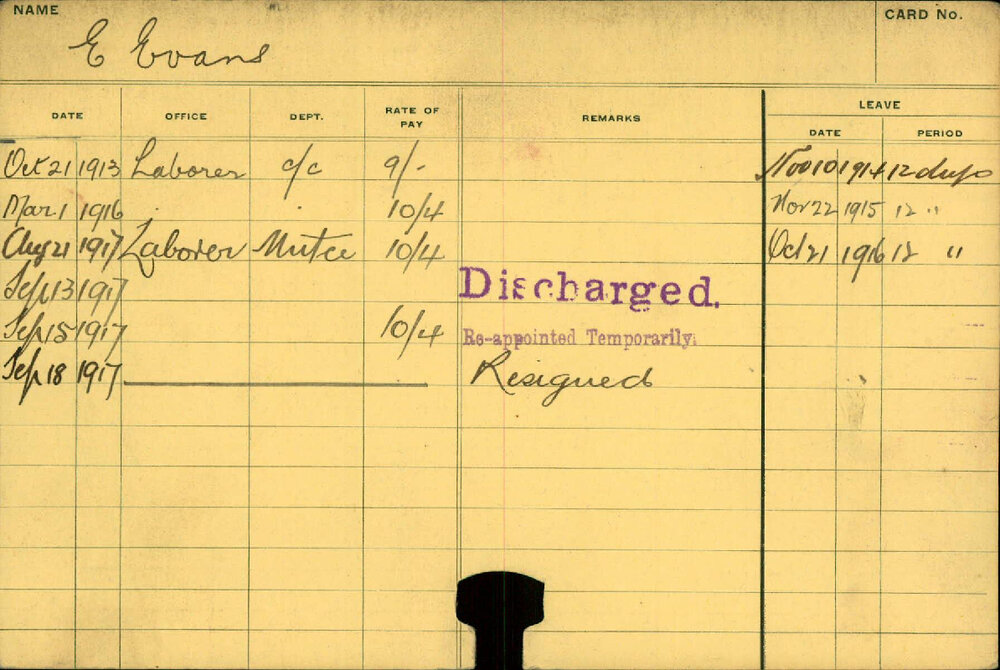 NAME
E Evans
CARD No.
DATE OFFICE DEPT. RATE OF PAY REMARKS LEAVE
DATE PERIOD
Oct 21 1913 Laborer c/c 9/- Nov 10 1914 12 days
Mar 1 1916 10/4 Nov 22 1915 12 "
Aug 21 1917 Laborer 10/4 Oct 21 1916 12 "
Sep 13 1917 Discharged.
Sep 15 1917 10/4 Re-appointed Temporarily.
Sep 18 1917 Resigned